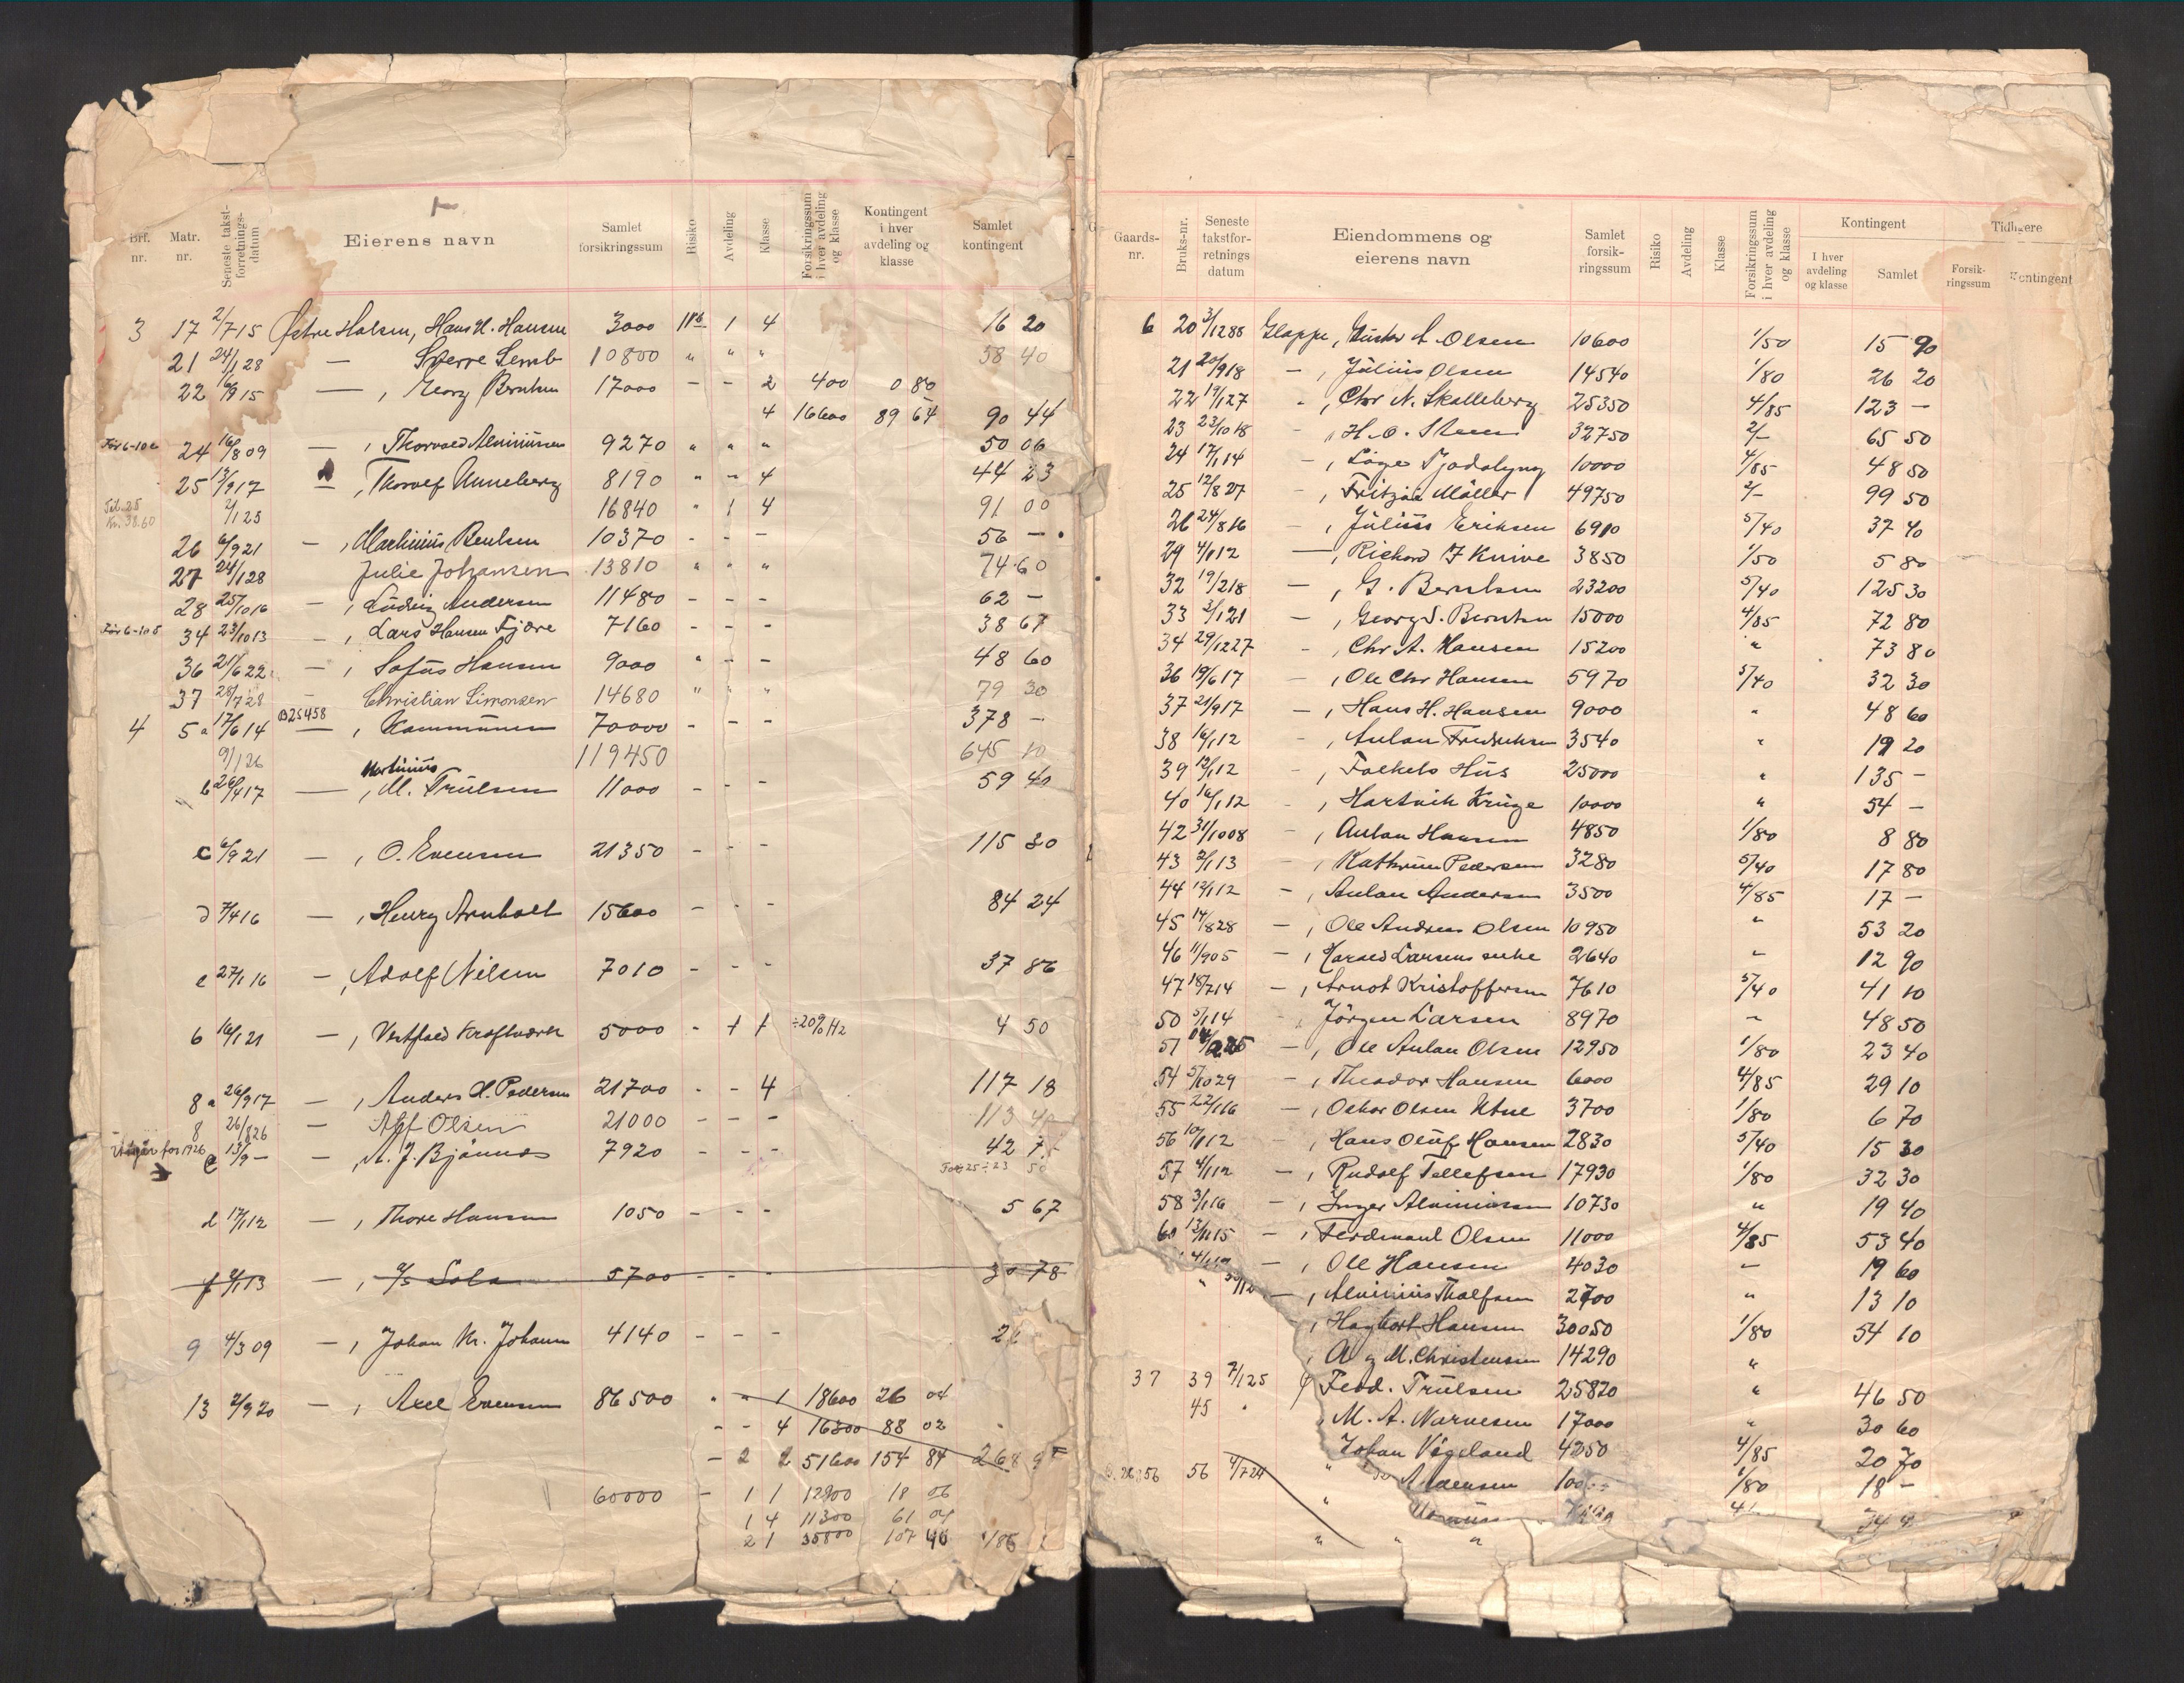 Brf. nr. Matr. nr. Seneste takst-forretnings-datum Eierens navn Samlet forsikringssum Risiko Avdeling Klasse Forsikringssum i hver avdeling og klasse Kontingent i hver avdeling og klasse Samlet kontingent
3 17 2/7 15 Østre Halsen, Hans H. Hansen 3000 11b 1 4 16 20
21 24/1 28 — Sverre Semb 10800 " " " 58 40
22 16/9 15 — , Georg Berntsen 17000 - - 2 400 0 80
4 16600 89 64 90 44
24 16/8 09 — , Thorvald Alminiussen 9270 " " " 50 06
25 13/9 17 — , Thorolf Unneberg 8190 " - 4 44 23
2/1 25 16840 " 1 4 91 00
26 6/9 21 — , Martinius Bentsen 10370 - - - 56 —
27 24/1 28 Julie Johansen 13810 " " " 74 60
28 25/10 16 — , Ludvig Andersen 11480 - - - 62 —
34 23/10 13 — , Lars Hansen Fjære 7160 - - - 38 67
36 21/6 22 — , Sofus Hansen 9000 " - - 48 60
37 28/7 28 — Christian Simonsen 14680 " " " 79 30
4 5 a 17/6 14 B25458 — , Kommunen 70000 - - - 378 —
9/1 26 119450 645 10
b 26/4 17 — , Martinius M. Trulsen 11000 - - - 59 40
c 6/9 21 — , O. Evensen 21350 - - - 115 30
d 7/4 16 — , Henry Arnholt 15600 - - - 84 24
e 27/1 16 — , Adolf Nilsen 7010 - - - 37 86
6 16/1 21 — , Vestfold Kraftværk 5000 - 1 1 ÷20% H2 4 50
8 a 26/9 17 — , Anders H. Pedersen 21700 - - 4 117 18
8 26/8 26 — Alf Olsen 21000 - - - 113 40
Utgår for 1926 c 13/9 - — , A. J. Bjønnes 7920 - - - 42 7
For 25 ÷ 23 50
d 17/1 12 — , Thore Hansen 1050 - - - 5 67
f 9/1 13 — , A/s Sola 5700 - - - 30 78
9 4/3 09 — , Johan Kr. Johann 4140 - - - 2
13 2/9 20 — , Axel Evensen 86500 " " 1 18600 26 04
- - 4 16300 88 02
- 2 2 51600 154 84 268 9
60000 - 1 1 12900 18 06
1 4 11300 61 04
2 1 35800 107 40 186
Gaards-nr. Bruks-nr. Seneste takstfor-retnings datum Eiendommens og eierens navn Samlet forsik-ringssum Risiko Avdeling Klasse Forsikringssum i hver avdeling og klasse Kontingent I hver avdeling og klasse Samlet Tidligere Forsik-ringssum Kontingent
6 20 3/12 88 Gloppe, Gustav A. Olsen 10600 1/50 15 90
21 20/9 18 — , Julius Olsen 14540 1/80 26 20
22 19/1 27 - , Chr N. Skalleberg 25350 4/85 123 —
23 23/10 18 - , H. O. Steen 32750 2/- 65 50
24 17/1 14 — , Loge Tjodalyng 10000 4/85 48 50
25 12/8 27 - , Fritzøe Møller 49750 2/- 99 50
26 24/8 16 - , Julius Eriksen 6910 5/40 37 40
29 4/1 12 — , Richard F Knive 3850 1/50 5 80
32 19/2 18 — , G. Berntsen 23200 5/40 125 30
33 3/1 21 — , Georg S. Berntsen 15000 4/85 72 80
34 29/12 27 - , Chr A. Hansen 15200 " 73 80
36 19/6 17 - , Ole Chr Hansen 5970 5/40 32 30
37 21/9 17 — , Hans H. Hansen 9000 " 48 60
38 16/1 12 - , Anton Fredriksen 3540 " 19 20
39 12/1 12 - , Folkets Hus 25000 " 135 —
40 16/1 12 - , Hartvik Kruge 10000 " 54 —
42 31/10 08 - , Anton Hansen 4850 1/80 8 80
43 2/1 13 - , Kathrine Pedersen 3280 5/40 17 80
44 12/1 12 — , Anton Andersen 3500 4/85 17 —
45 14/8 28 — , Ole Andreas Olsen 10950 " 53 20
46 11/9 05 — , Harald Larsens enke 2640 " 12 90
47 18/7 14 — , Arnot Kristoffersen 7610 5/40 41 10
50 5/1 14 - , Jørgen Larsen 8970 " 48 50
51 — , Ole Anton Olsen 12950 1/80 23 40
54 5/10 29 — , Theodor Hansen 6000 4/85 29 10
55 22/1 16 — , Oskar Olsen 3700 1/80 6 70
56 10/1 12 - , Hans Oluf Hansen 2830 5/40 15 30
57 4/1 12 — , Rudolf Tellefsen 17930 1/80 32 30
58 3/1 16 — , Inger Alminiussen 10730 " 19 40
60 13/11 15 — , Ferdinand Olsen 11000 4/85 53 40
— , Ole Hansen 4030 " 19 60
— , Alminius Tholfsen 2700 " 13 10
, Hagbart Hansen 30050 1/80 54 10
, A og M. Christensen 14290 "
37 39 7/1 25 , Ferd. Trulsen 25820 " 46 50
45 " , M. A. Narvesen 17000 " 30 60
Johan Vågeland 4250 4/85 20 70
56 56 4/7 24 " Andersen 1/80 18 —
" 34
" " "